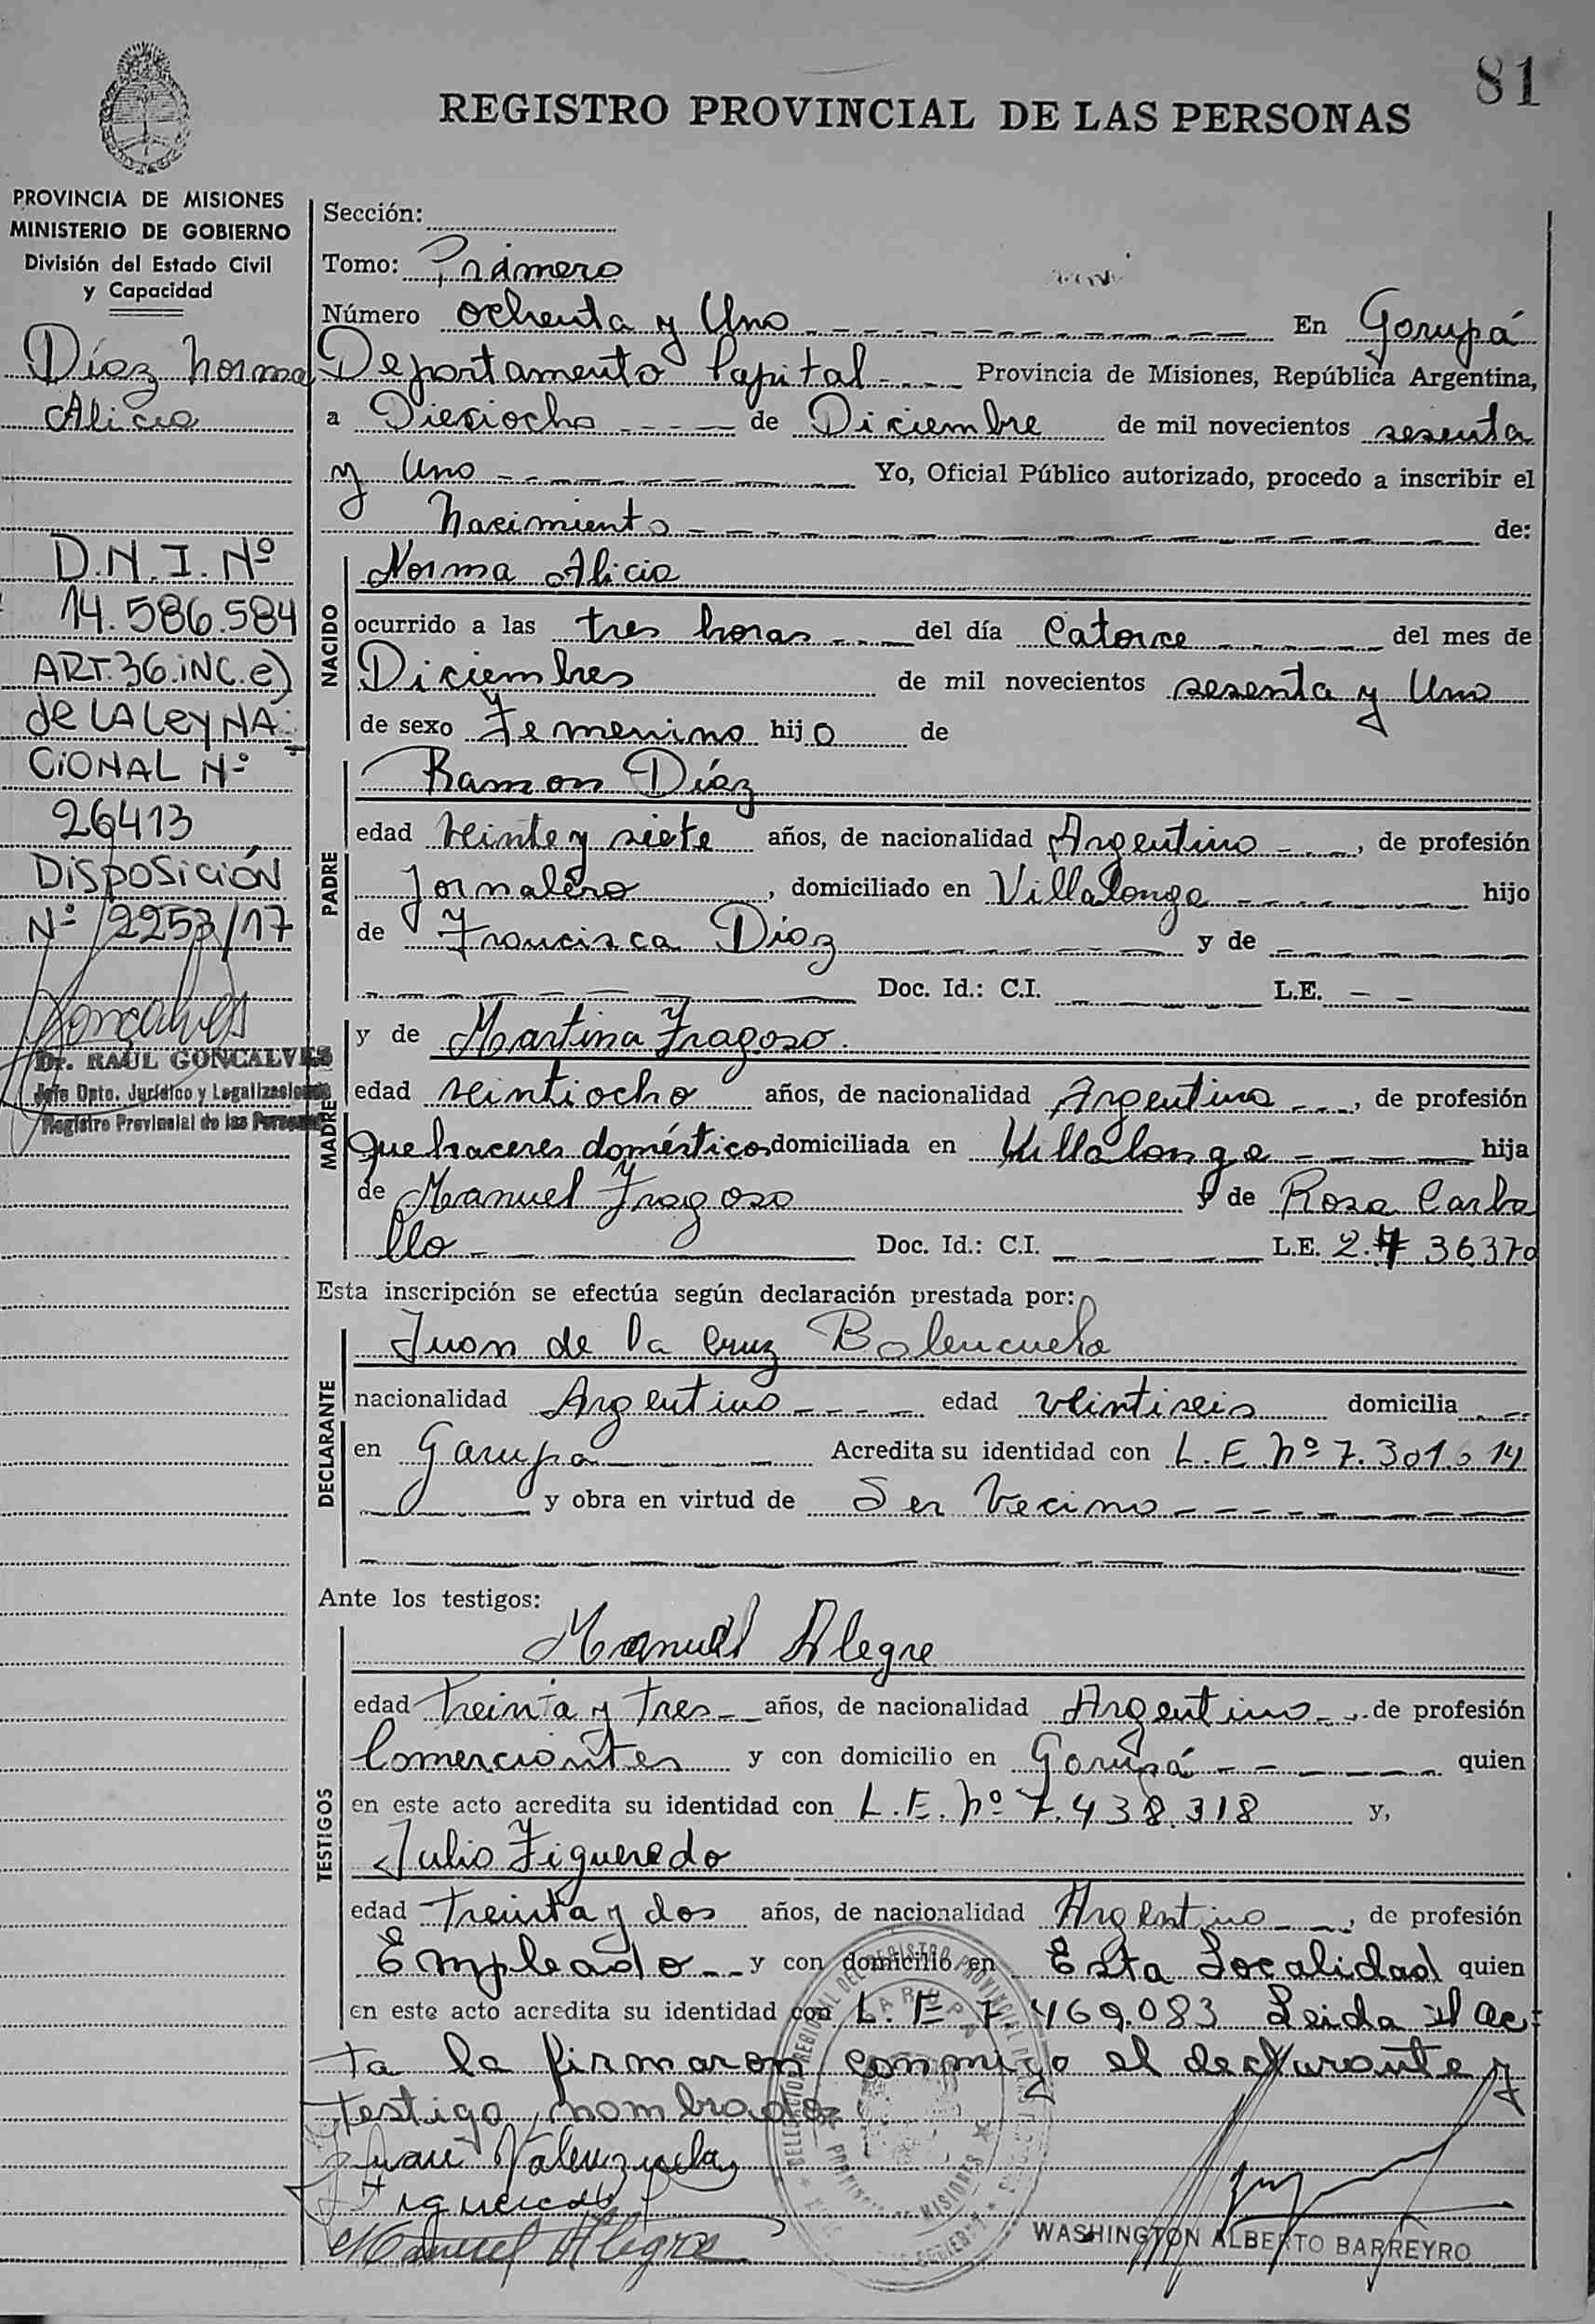 81
REGISTRO PROVINCIAL DE LAS PERSONAS
PROVINCIA DE MISIONES
MINISTERIO DE GOBIERNO
División del Estado Civil
y Capacidad
Díaz Norma
Alicia
D.N.I. Nº
14.586.584
ART.36.iNC.e)
de LA Ley NA-
CiONAL Nº
26413
DISPOSICIÓN
Nº 2253/17
Goncalves
Dr. RAUL GONCALVES
Jefe Dpto. Jurídico y Legalizaciones
Registro Provincial de las Personas
Sección:
Tomo: Primero
Número ochenta y Uno En Garupá
Departamento Capital Provincia de Misiones, República Argentina,
a Dieciocho de Diciembre de mil novecientos sesenta
y Uno Yo, Oficial Público autorizado, procedo a inscribir el
Nacimiento de:
NACIDO
Norma Alicia
ocurrido a las tres horas del día Catorce del mes de
Diciembres de mil novecientos sesenta y Uno
de sexo Femenino hijo de
PADRE
Ramon Díaz
edad Veinte y siete años, de nacionalidad Argentino, de profesión
Jornalero, domiciliado en Villalonga hijo
de Francisca Diaz y de
Doc. Id.: C.I. L.E.
MADRE
y de Martina Fragoso
edad veintiocho años, de nacionalidad Argentina, de profesión
Que haceres domésticos domiciliada en Villalonga hija
de Manuel Fragoso y de Rosa Carba
llo Doc. Id.: C.I. L.E. 2.4 36370
Esta inscripción se efectúa según declaración prestada por:
DECLARANTE
Juan de la Cruz Balencuela
nacionalidad Argentino edad veintiseis domicilia
en Garupa Acredita su identidad con L.E. Nº 7.301.614
y obra en virtud de Ser Vecino
Ante los testigos:
TESTIGOS
Manuel Alegre
edad treinta y tres años, de nacionalidad Argentino, de profesión
Comerciantes y con domicilio en Garupá quien
en este acto acredita su identidad con L.E. Nº 7.438.318 y,
Julio Figueredo
edad Treinta y dos años, de nacionalidad Argentino, de profesión
Empleado y con domicilio en Esta Localidad quien
en este acto acredita su identidad con L.E 7.469.083 Leida el ac-
ta la firmaron conmigo el declarante y
testigo nombrados
Juan Valenzuela
Figueredo
Manuel Alegre
DELEGACION DEL REGISTRO PROVINCIAL DE LAS PERSONAS
GARUPA
PROVINCIA DE MISIONES
WASHINGTON ALBERTO BARREYRO